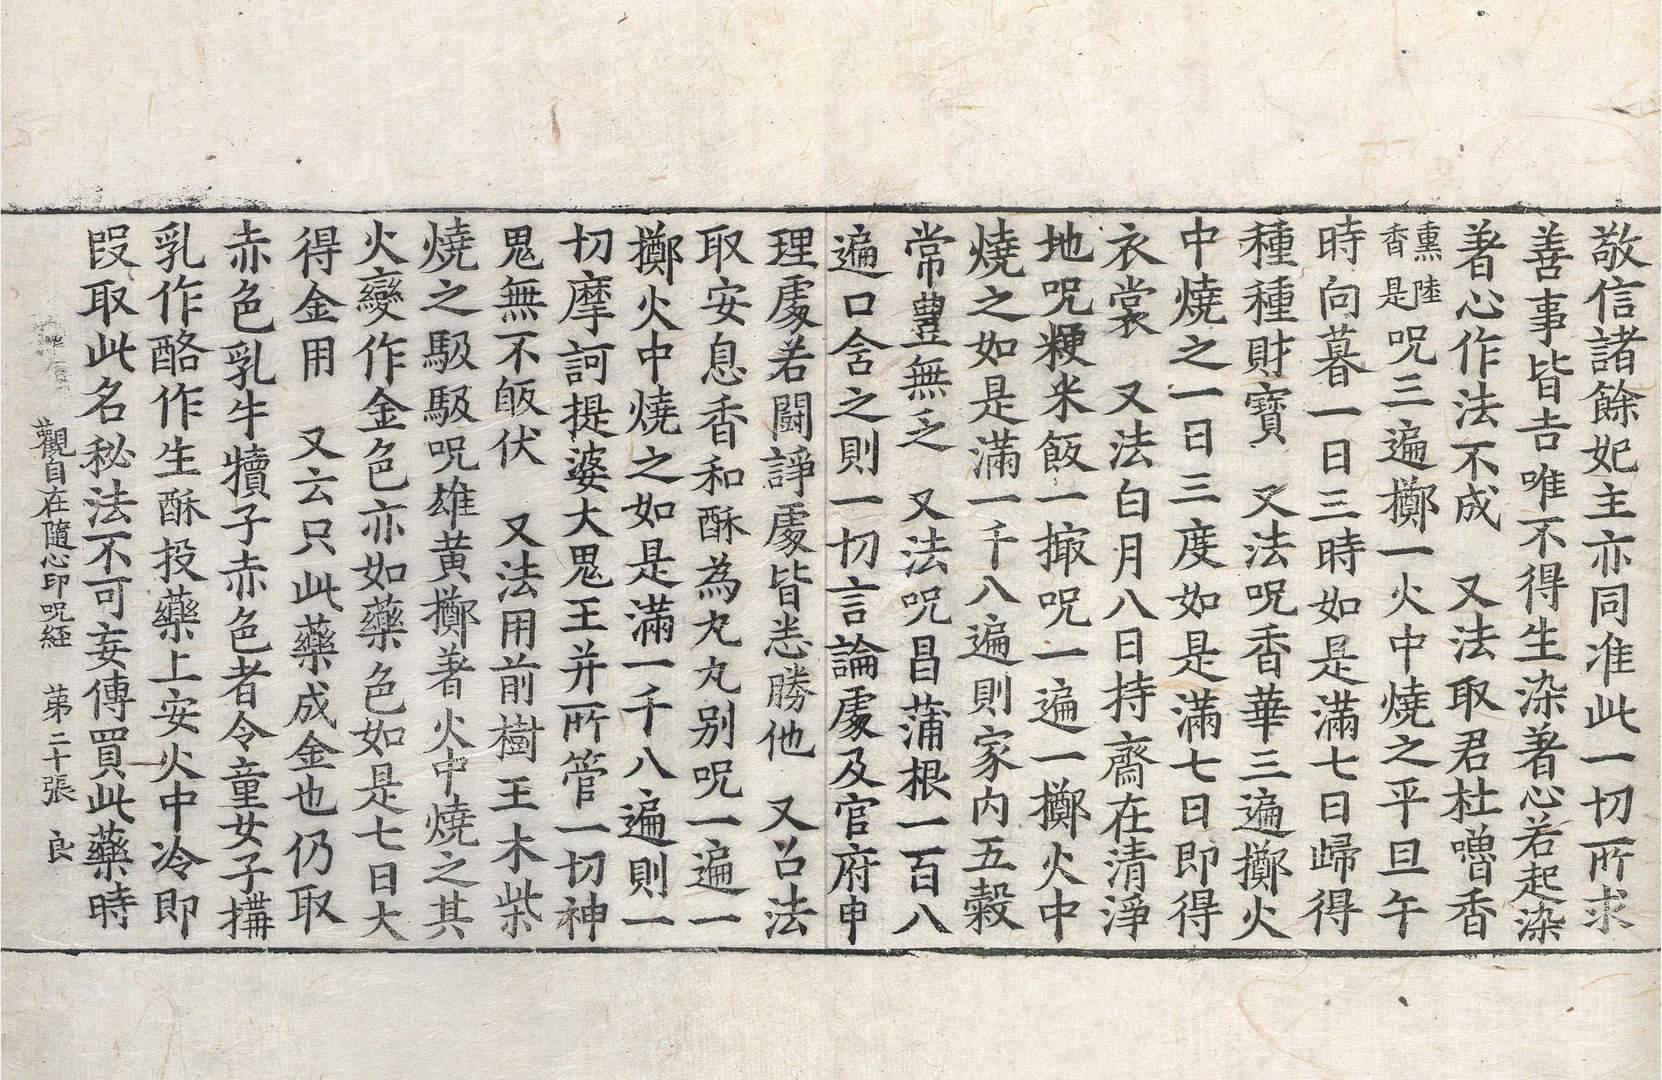 敬信諸餘妃主亦同准此一切所求
善事皆吉唯不得生染著心若起染
著心作法不成　又法取君杜嚕香
熏陸
香是
呪三遍擲一火中燒之平旦午
時向暮一日三時如是滿七日歸得
種種財寶　又法呪香華三遍擲火
中燒之一日三度如是滿七日即得
衣裳　又法白月八日持齋在清淨
地呪粳米飯一撮呪一遍一擲火中
燒之如是滿一千八遍則家內五穀
常豊無乏　又法呪昌蒲根一百八
遍口含之則一切言論處及官府申
理處若鬪諍處皆悉勝他　又召法
取安息香和酥為丸丸別呪一遍一
擲火中燒之如是滿一千八遍則一
切摩訶提婆大鬼王并所管一切神
鬼無不皈伏　又法用前樹王木柴
燒之馺馺呪雄黃擲著火中燒之其
火變作金色亦如藥色如是七日大
得金用　又云只此藥成金也仍取
赤色乳牛犢子赤色者令童女子搆
乳作酪作生酥投藥上安火中冷即
段取此名秘法不可妄傳買此藥時
觀自在隨心印呪経　苐二十張　良